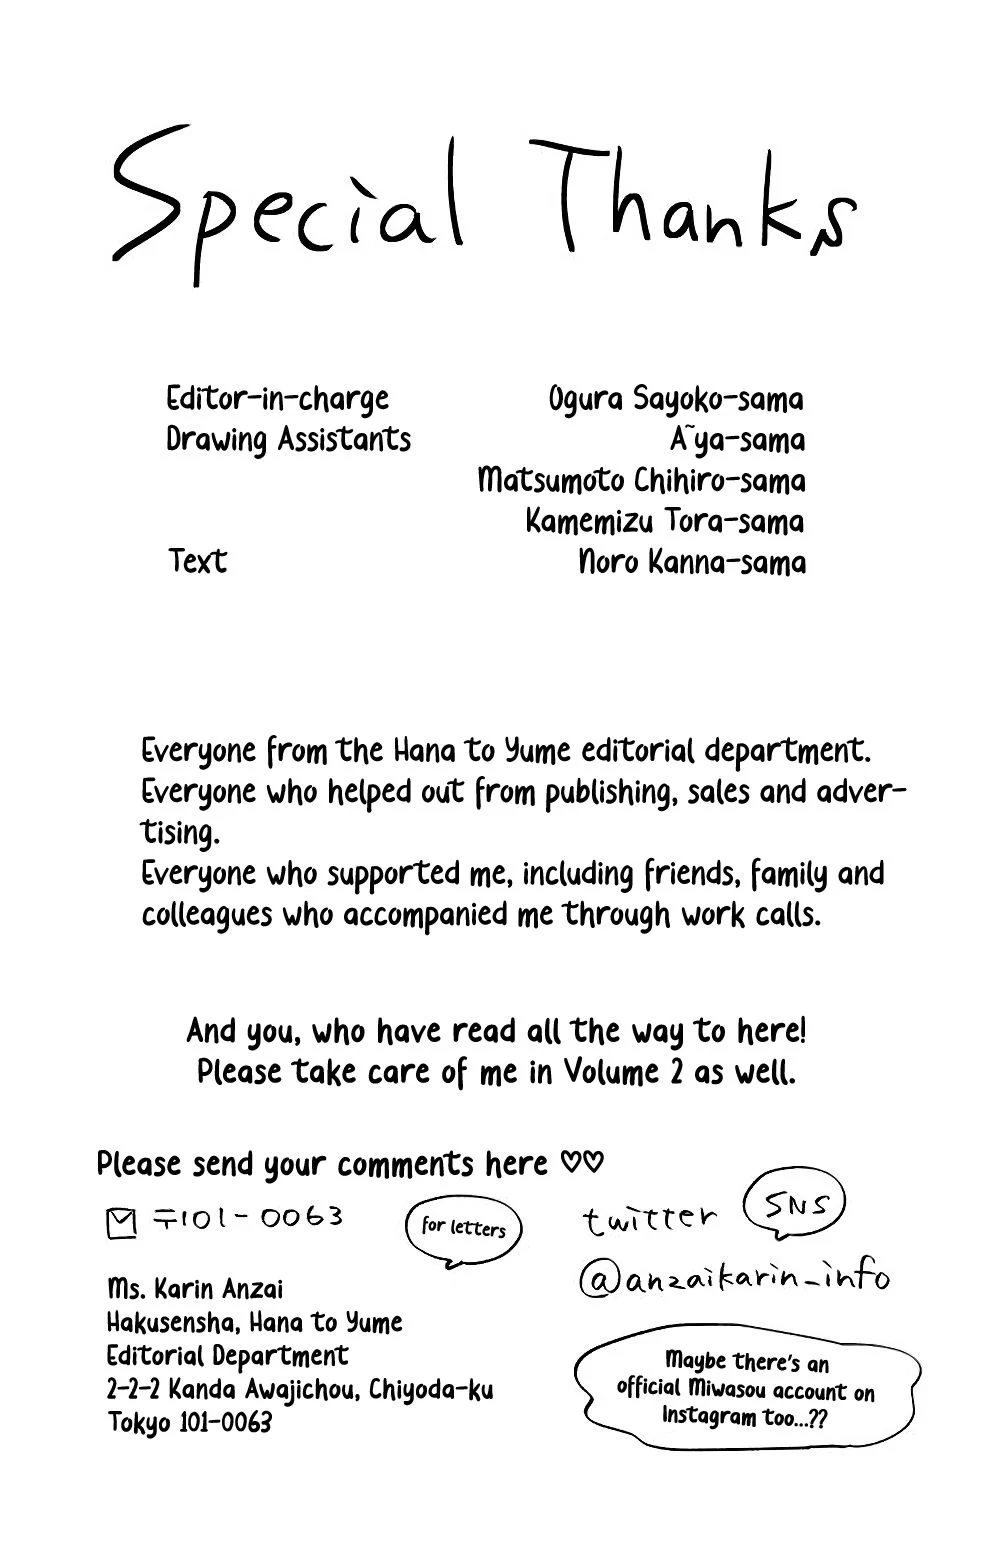 Special Thanks
Editor-in-charge Ogura Sayoko-sama
Drawing Assistants A~ya-sama
Matsumoto Chihiro-sama
Kamemizu Tora-sama
Text Noro Kanna-sama
Everyone from the Hana to Yume editorial department.
Everyone who helped out from publishing, sales and adver-
tising.
Everyone who supported me, including friends, family and
colleagues who accompanied me through work calls.
And you, who have read all the way to here!
Please take care of me in Volume 2 as well.
Please send your comments here ♡♡
〒101-0063
for letters
Ms. Karin Anzai
Hakusensha, Hana to Yume
Editorial Department
2-2-2 Kanda Awajichou, Chiyoda-ku
Tokyo 101-0063
twitter SNS
@anzaikarin_info
Maybe there's an
official Miwasou account on
Instagram too...??